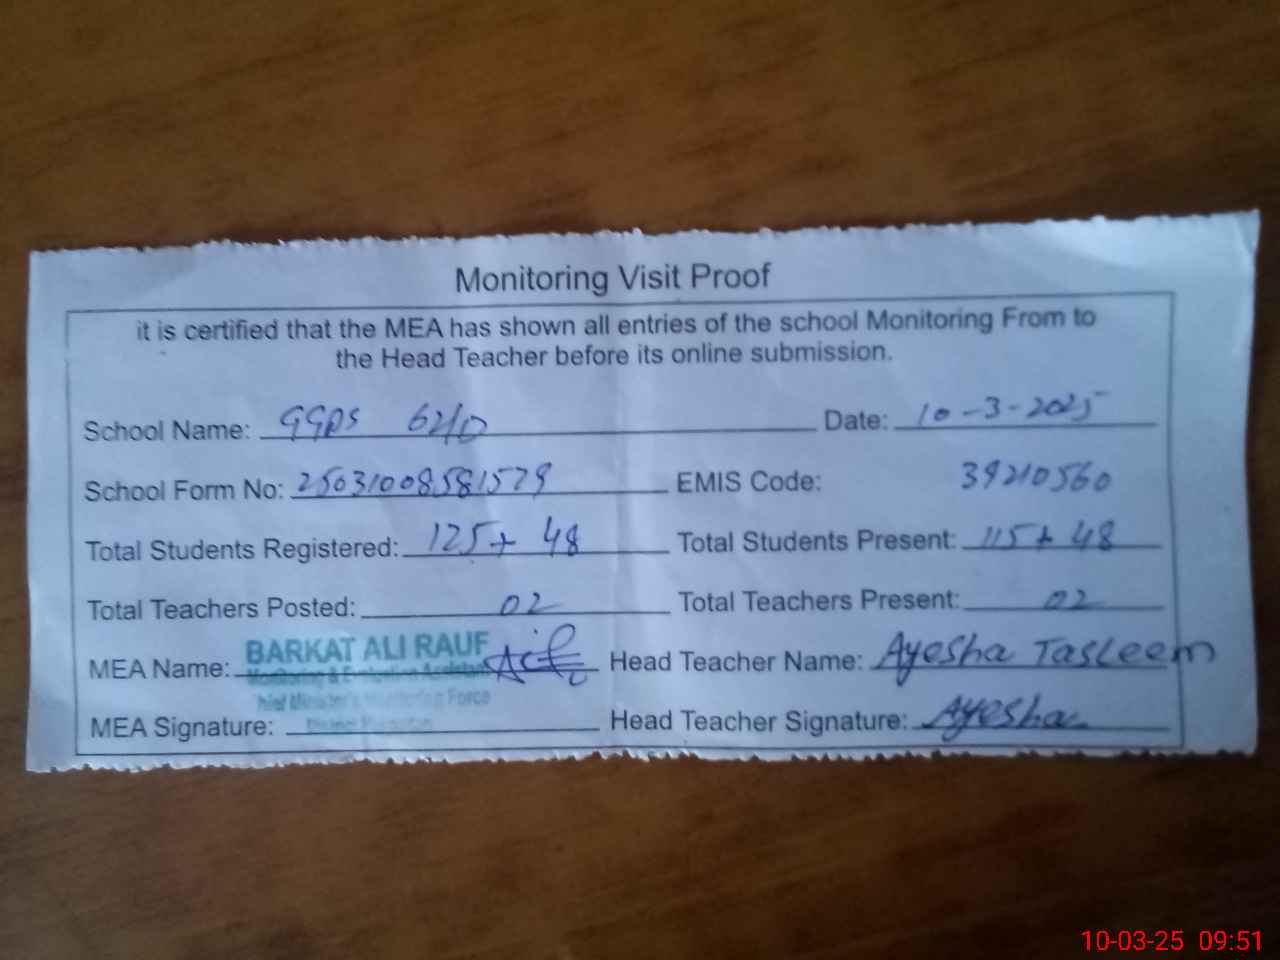 Monitoring Visit Proof
it is certified that the MEA has shown all entries of the school Monitoring From to
the Head Teacher before its online submission.
School Name: GGPS 62/D Date: 10-3-2025
School Form No: 25031008581579 EMIS Code: 39210560
Total Students Registered: 125+ 48 Total Students Present: 115+ 48
Total Teachers Posted: 02 Total Teachers Present: 02
MEA Name: BARKAT ALI RAUF Head Teacher Name: Ayesha Tasleem
Monitoring & Evaluation Assistant
Chief Minister's Monitoring Force
MEA Signature: Head Teacher Signature: Ayesha
10-03-25 09:51